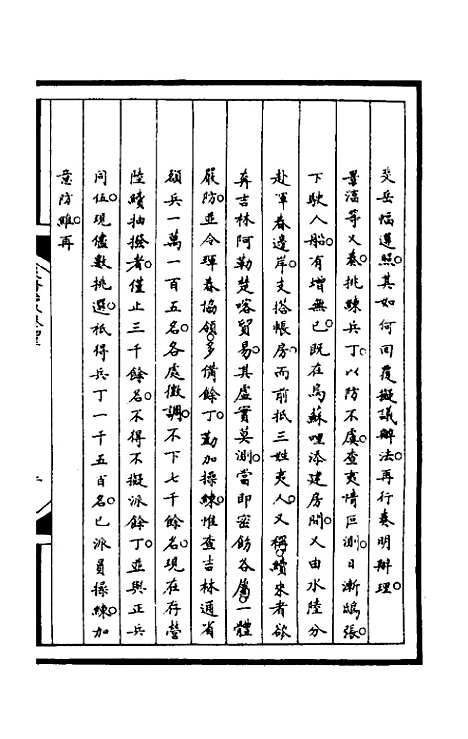 奕岳幅選照。其如何回覆擬議辦法。再行奏明辦理。
景淳等又奏。挑練兵丁。以防不虞。查夷情叵測。日漸鴟張。
下駛人船。有增無已。既在烏蘇哩添建房間。又由水陸分
赴琿春邊岸。支搭帳房。而前抵三姓夷人。又稱。續來者欲
奔吉林阿勒楚喀貿易。其虛實莫測。當即密飭各屬。一體
嚴防。並令琿春協領。多備餘丁。勤加操練。惟查吉林通省
額兵一萬一百五名。各處徵調。不下七千餘名。現在存營
陸續抽撥者。僅止三千餘名。不得不擬派餘丁。並與正兵
同伍。現儘數挑選。祇得兵丁一千五百名。已派員操練。加
意防雖。再